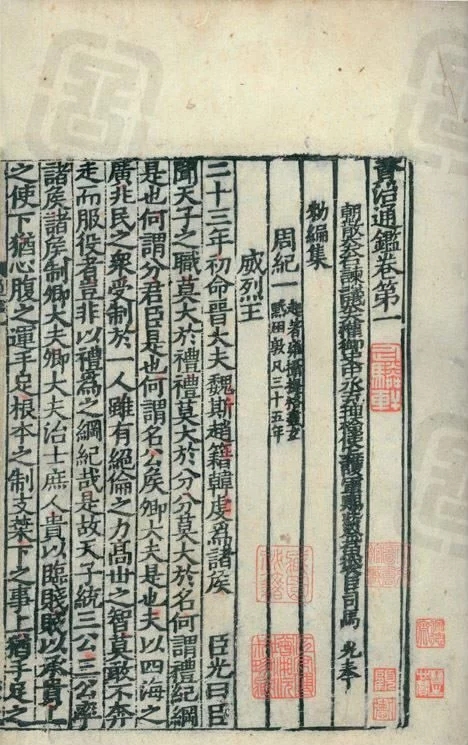 資治通鑑卷第一
朝散大夫右諫議大夫權御史中丞充理檢使上護軍賜紫金魚袋臣司馬 光奉
勑編集
周紀一 起著雍攝提格盡玄黓困敦凡三十五年
威烈王
二十三年初命晉大夫魏斯趙籍韓虔爲諸侯 臣光曰臣
聞天子之職莫大於禮禮莫大於分分莫大於名何謂禮紀綱
是也何謂分君臣是也何謂名公侯卿大夫是也夫以四海之
廣兆民之衆受制於一人雖有絕倫之力高世之智莫敢不奔
走而服役者豈非以禮爲之綱紀哉是故天子統三公三公率
諸侯諸侯制卿大夫卿大夫治士庶人貴以臨賤賤以承貴上
之使下猶心腹之運手足根本之制支葉下之事上猶手足之